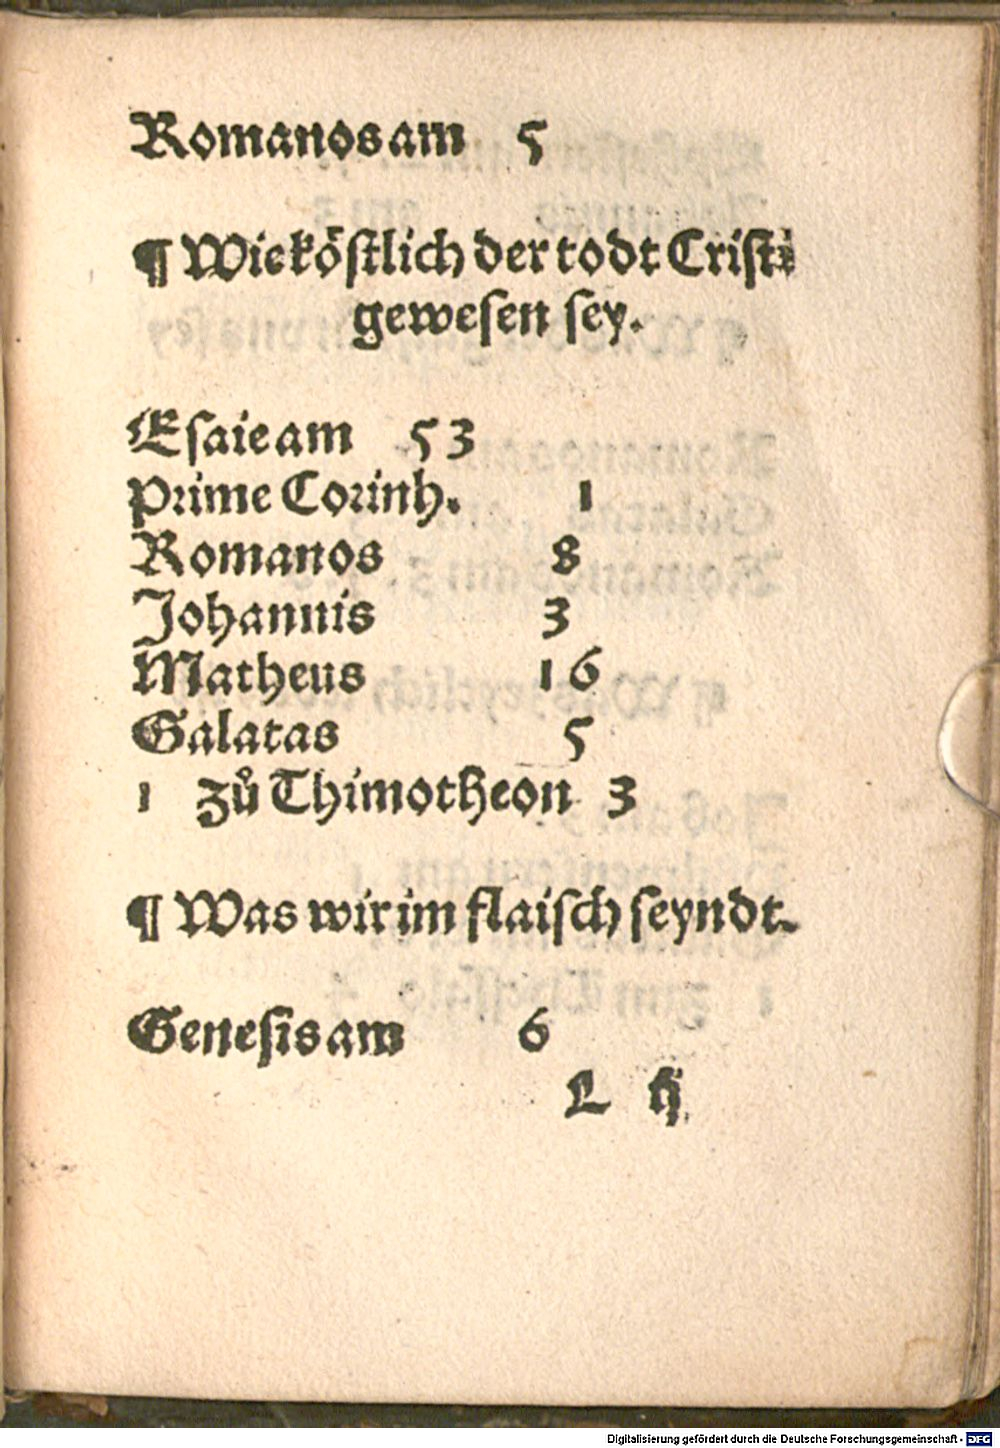 Romanos am 5
¶ Wie köſtlich der todt Criſti
geweſen ſey.
Eſaie am 53
Prime Corinh. 1
Romanos 8
Johannis 3
Matheus 16
Galatas 5
1 zů Thimotheon 3
¶ Was wir im flaiſch ſeyndt.
Geneſis am 6
L ij
Digitalisierung gefördert durch die Deutsche Forschungsgemeinschaft - DFG